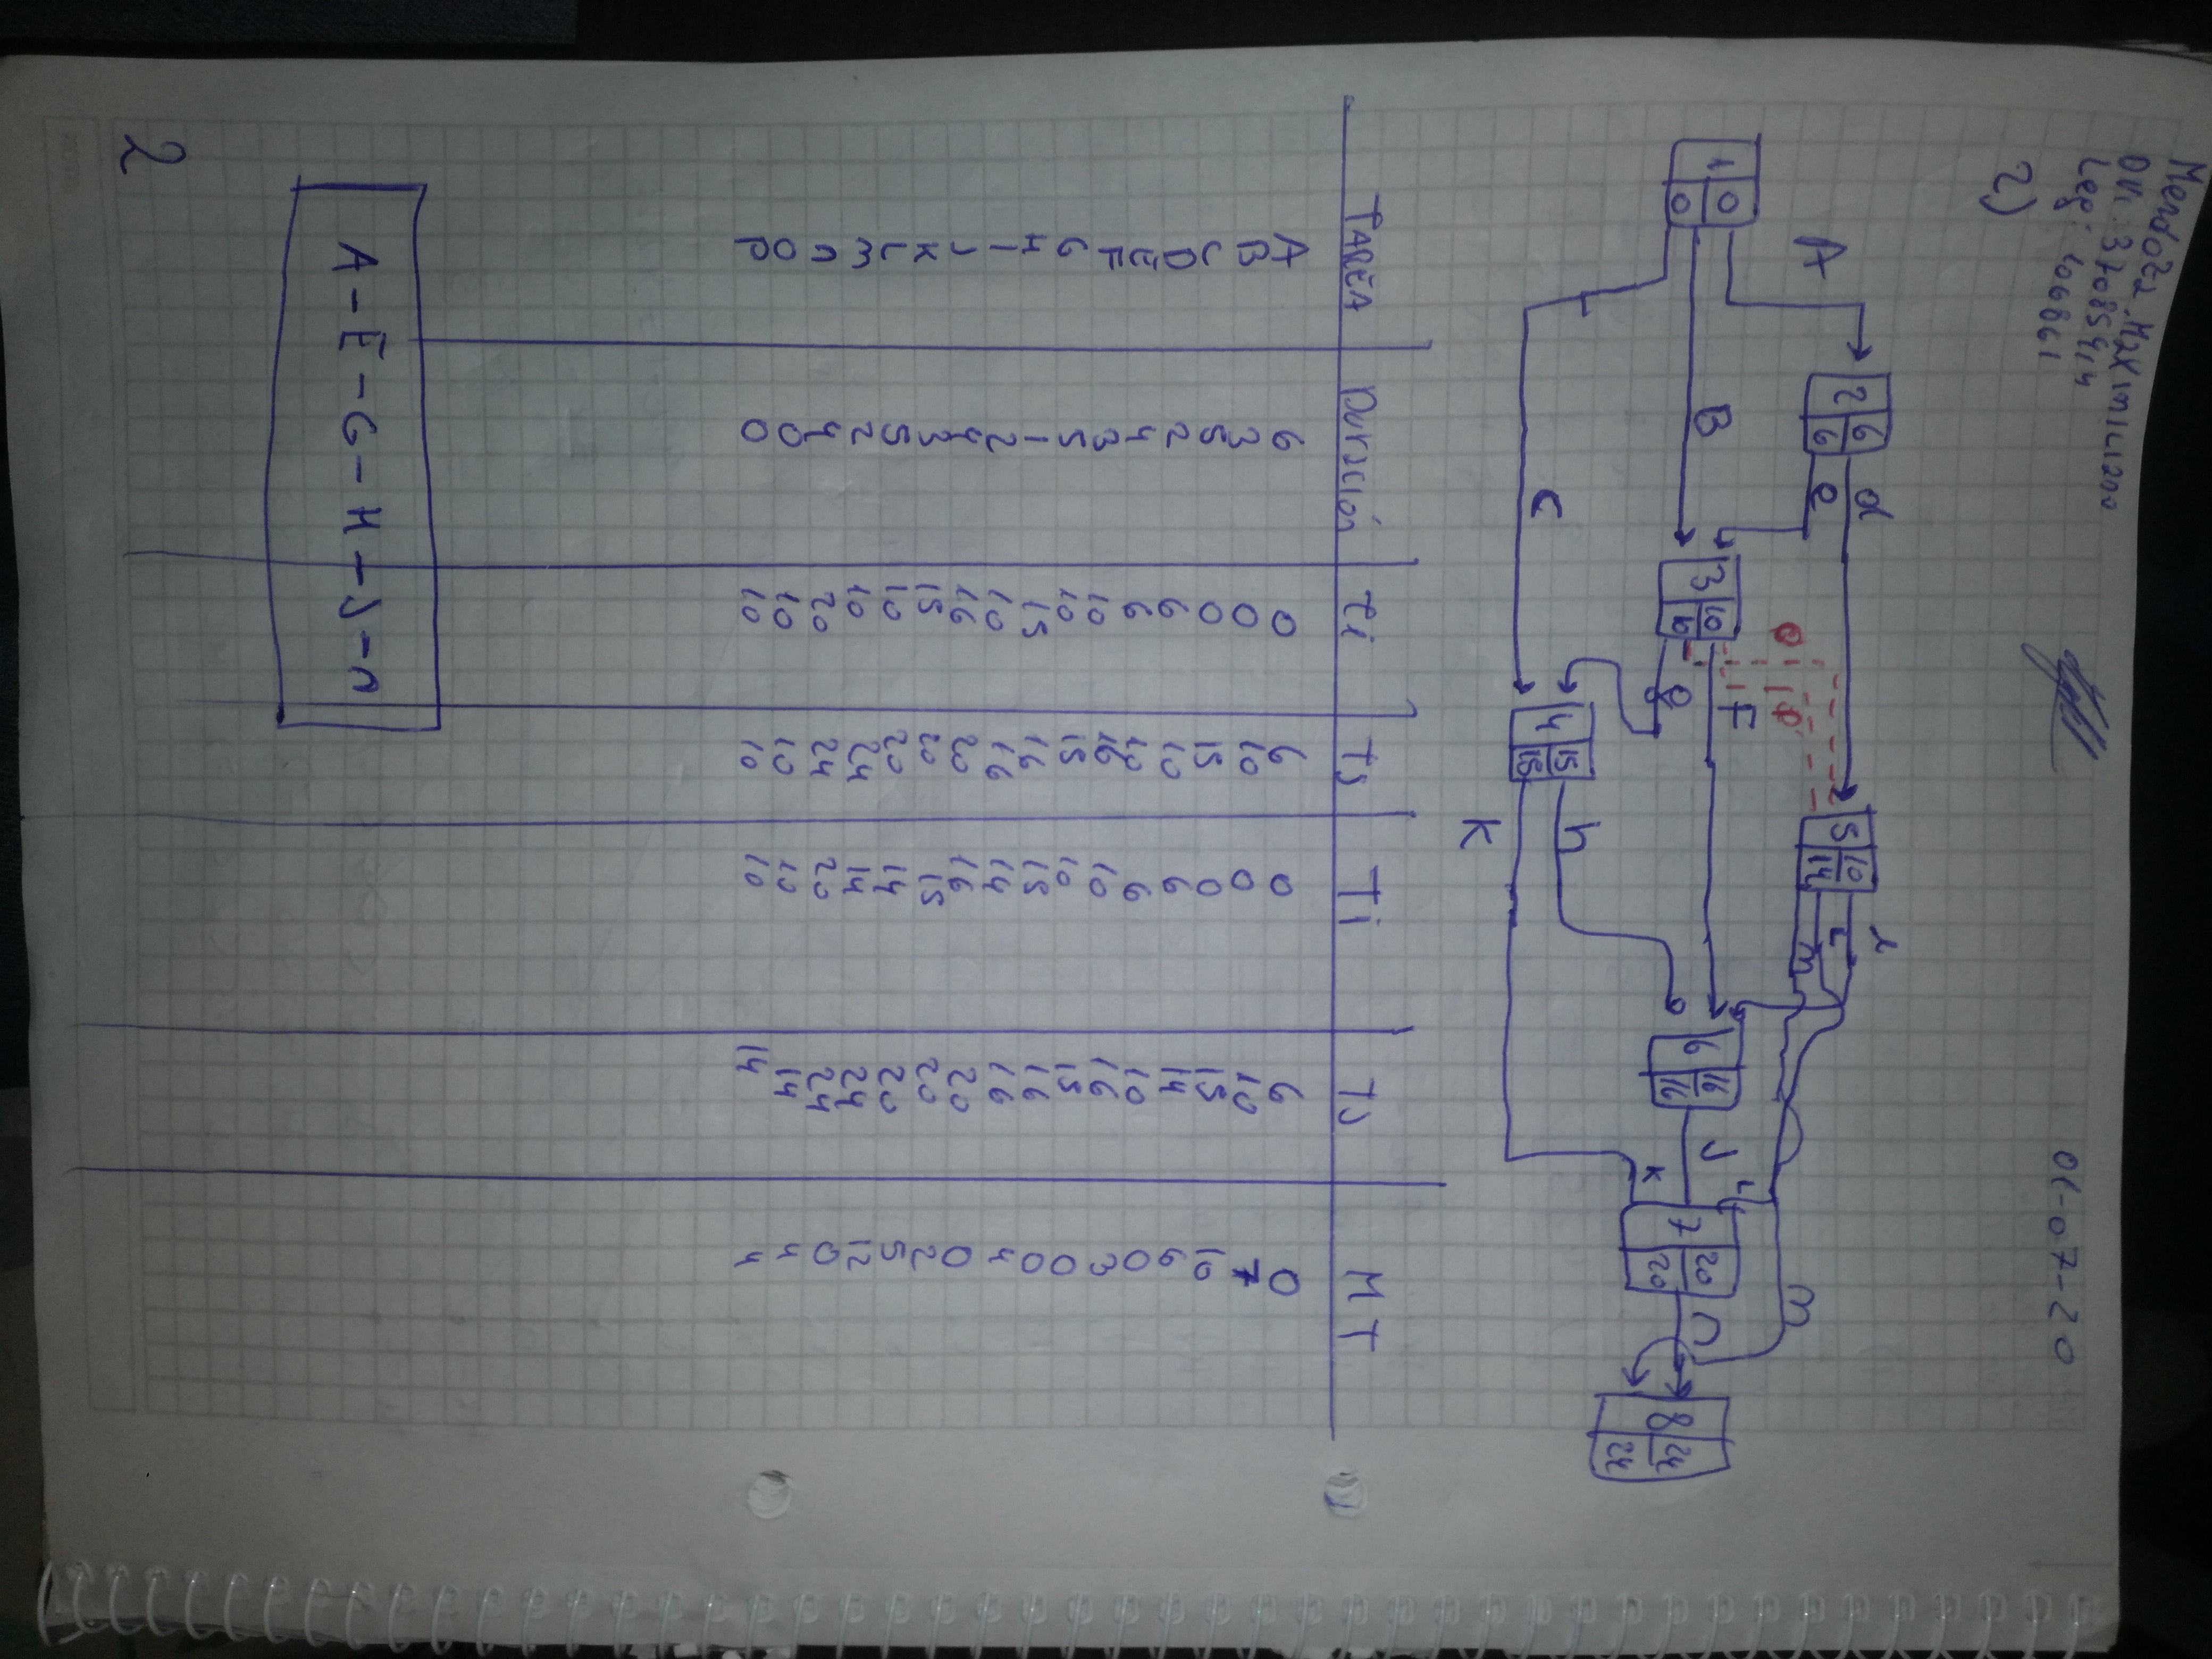 Mendoza Maximiliano
DNI: 37085414
Leg: 106861
01-07-20
2)
A
2 6 6
d
e
1 0 0
B
C
3 10 10
O
P
F
g
4 15 15
h
K
5 10 14
i
L
m
6 16 16
J
L
K
7 20 20
m
n
8 24 24
TAREA Duración Ti Ts Ti Ts MT
A 6 0 6 0 6 0
B 3 0 10 0 10 7
C 5 0 15 0 15 10
D 2 6 10 6 14 6
E 4 6 10 6 10 0
F 3 10 16 10 16 3
G 5 10 15 10 15 0
H 1 15 16 15 16 0
I 2 10 16 14 16 4
J 4 16 20 16 20 0
K 3 15 20 15 20 2
L 5 10 20 14 20 5
m 2 10 24 14 24 12
n 4 20 24 20 24 0
O 0 10 10 10 14 4
P 0 10 10 10 14 4
A - E - G - H - J - n
2